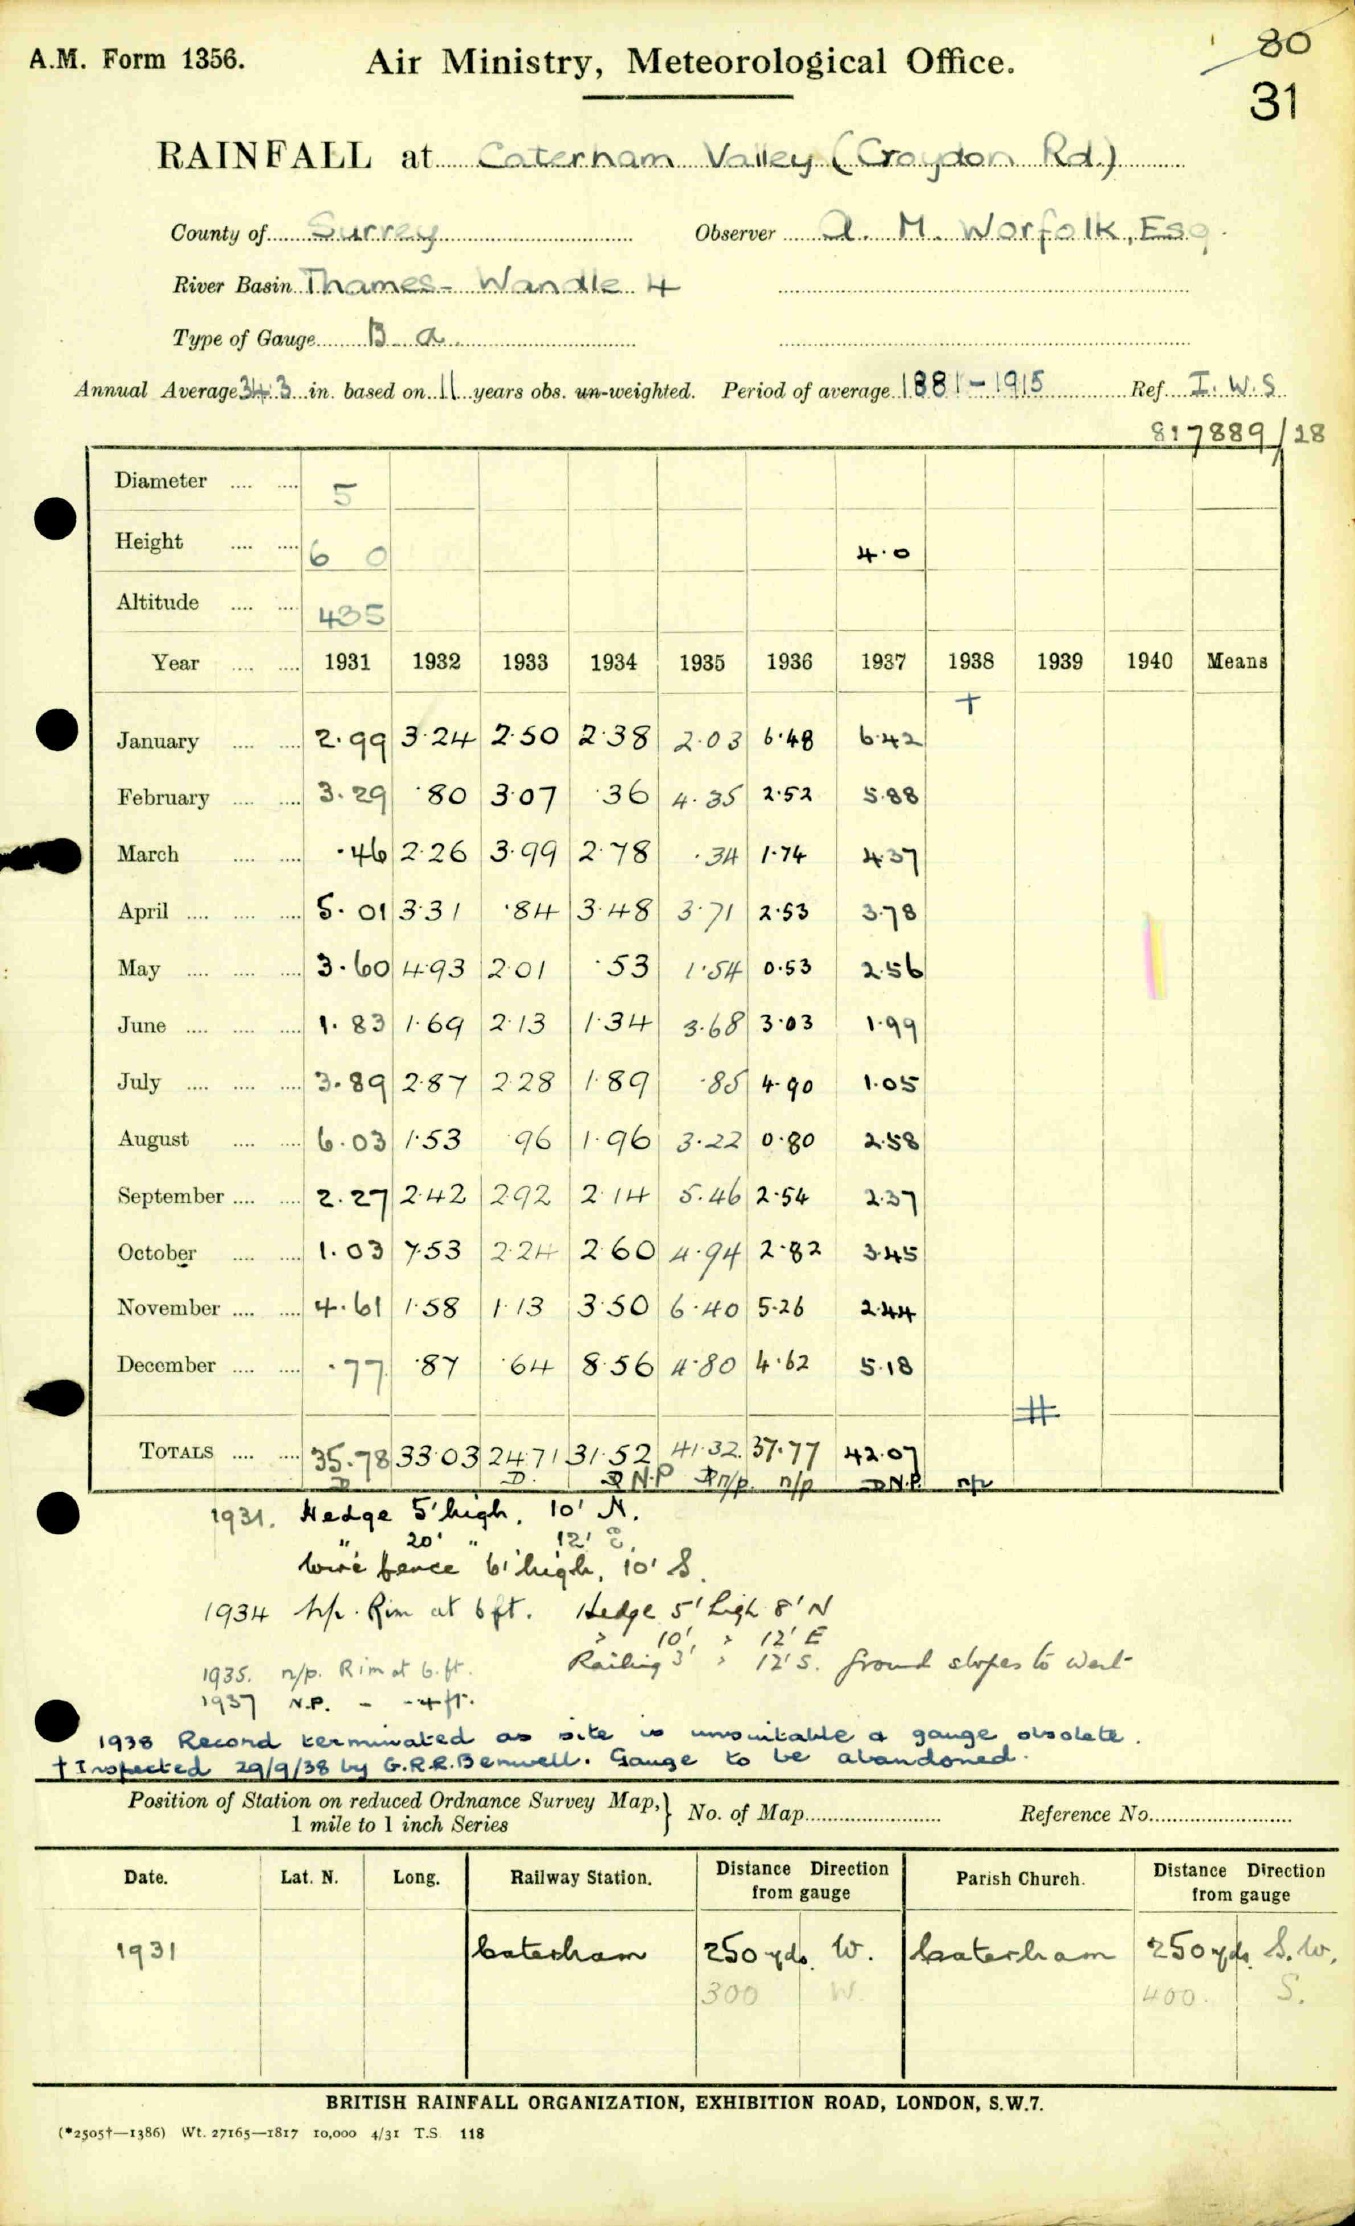 A.M. Form 1356. Air Ministry, Meteorological Office. 30
31
RAINFALL at Caterham Valley (Croydon Rd.)
County of Surrey Observer A. M. Worfolk, Esq.
River Basin Thames - Wandle 4
Type of Gauge B a.
Annual Average 34.3 in. based on 11 years obs. un-weighted. Period of average 1881-1915 Ref. I.W.S
817889/28
Diameter 5
Height 6 0 4.0
Altitude 435
Year 1931 1932 1933 1934 1935 1936 1937 1938 1939 1940 Means
†
January 2.99 3.24 2.50 2.38 2.03 6.48 6.42
February 3.29 .80 3.07 .36 4.35 2.52 5.88
March .46 2.26 3.99 2.78 .34 1.74 4.37
April 5.01 3.31 .84 3.48 3.71 2.53 3.78
May 3.60 4.93 2.01 .53 1.54 0.53 2.56
June 1.83 1.69 2.13 1.34 3.68 3.03 1.99
July 3.89 2.87 2.28 1.89 .85 4.90 1.05
August 6.03 1.53 .96 1.96 3.22 0.80 2.58
September 2.27 2.42 2.92 2.14 5.46 2.54 2.37
October 1.03 7.53 2.24 2.60 4.94 2.82 3.45
November 4.61 1.58 1.13 3.50 6.40 5.26 2.44
December .77 .87 .64 8.56 4.80 4.62 5.18
TOTALS 35.78 33.03 24.71 31.52 41.32 37.77 42.07
D D. N.P n/p. n/p N.P. n/p
1931. Hedge 5' high, 10' N.
" 20' " 12' E.
Wire fence 6' high, 10' S.
1934 n/p. Rim at 6 ft. Hedge 5' high 8' N
" 10' " 12' E
Railing 3' " 12' S. Ground slopes to West
1935. n/p. Rim at 6. ft.
1937 N.P. - - 4 ft.
1938 Record terminated as site is unsuitable & gauge obsolete.
† Inspected 29/9/38 by G.R.R. Benwell. Gauge to be abandoned.
Position of Station on reduced Ordnance Survey Map, 1 mile to 1 inch Series } No. of Map Reference No.
Date. Lat. N. Long. Railway Station. Distance Direction from gauge Parish Church. Distance Direction from gauge
1931 Caterham 250 yds. W. Caterham 250 yds. S.W.
300 W. 400. S.
BRITISH RAINFALL ORGANIZATION, EXHIBITION ROAD, LONDON, S.W.7.
(*2505†—1386) Wt. 27165—1817 10,000 4/31 T.S. 118